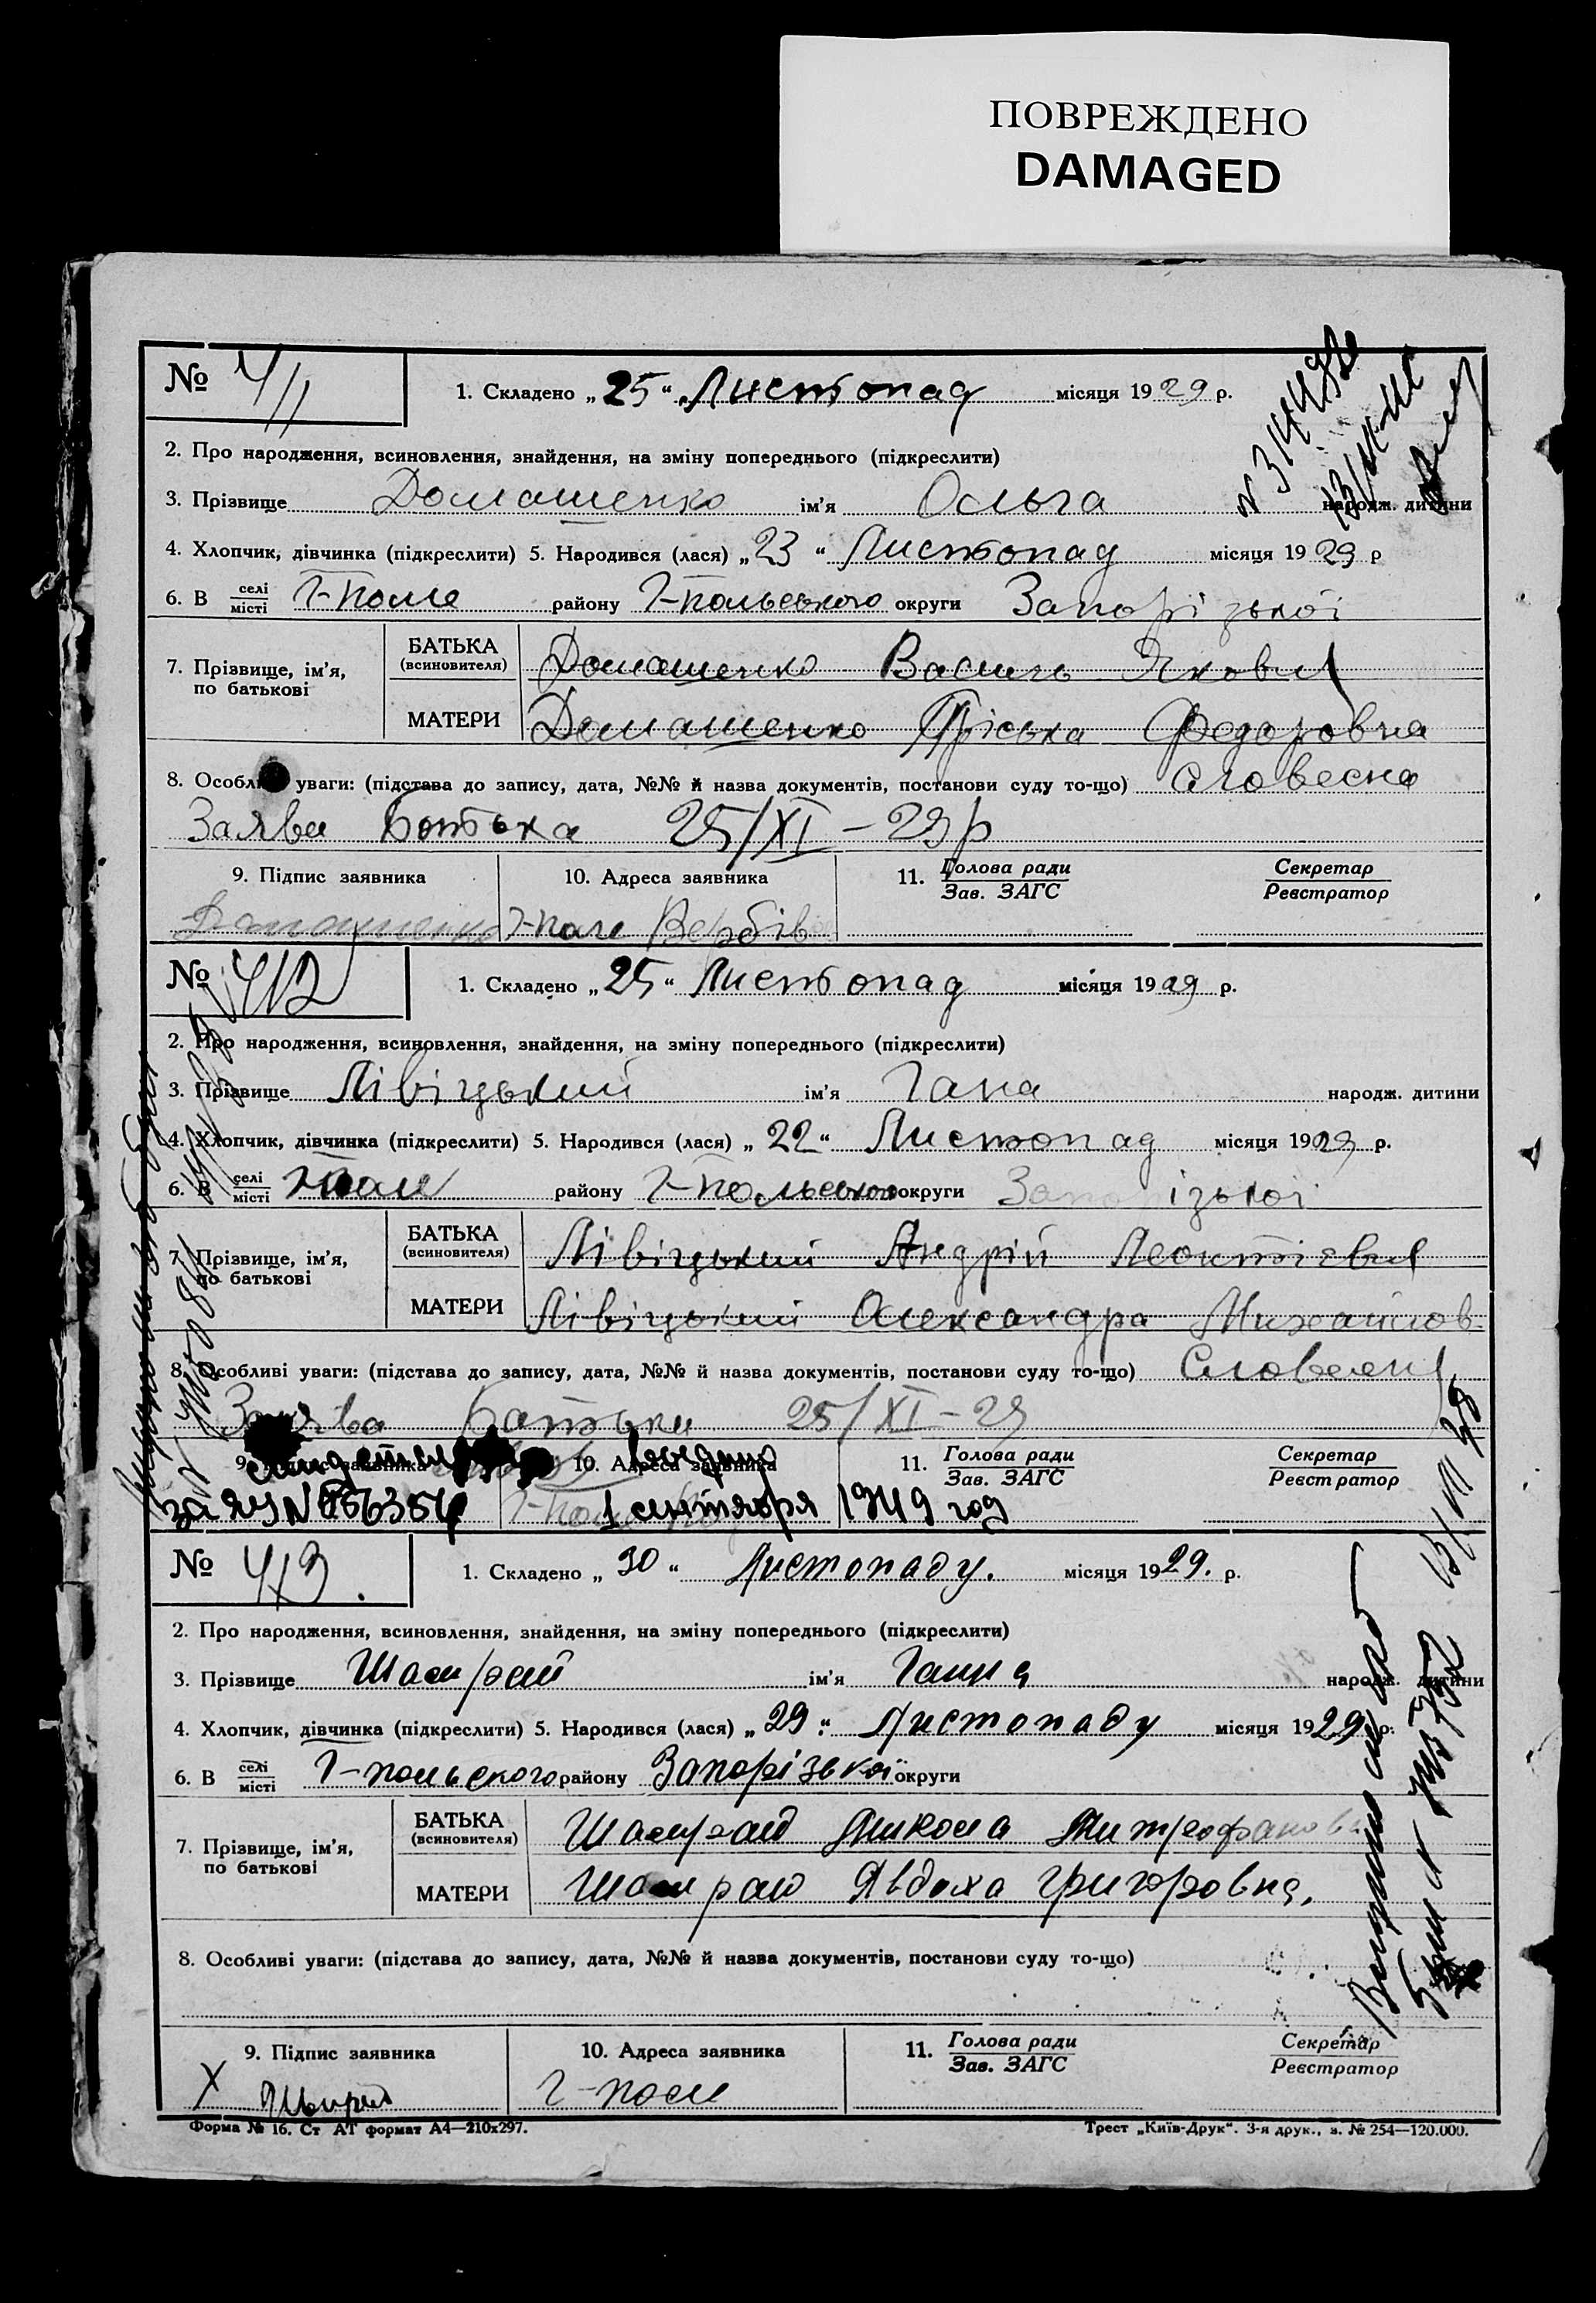 ПОВРЕЖДЕНО
DAMAGED
№ 411
1. Складено „25“ Листопад місяця 1929 р.
2. Про народження, всиновлення, знайдення, на зміну попереднього (підкреслити)
3. Прізвище Домашенко ім'я Ольга народж. дитини
4. Хлопчик, дівчинка (підкреслити) 5. Народився (лася) „23“ Листопад місяця 1929 р
6. В селі місті Г-Поле району Г-Польського округи Запорізької
7. Прізвище, ім'я, по батькові
БАТЬКА (всиновителя) Домашенко Василь Якович
МАТЕРИ Домашенко Пріська Федоровна
8. Особливі уваги: (підстава до запису, дата, №№ й назва документів, постанови суду то-що) словесна
Заява Батька 25/XI – 29 р
9. Підпис заявника 10. Адреса заявника 11. Голова ради Зав. ЗАГС Секретар Реєстратор
Домашенко Г-Поле Вербів
№ 412
1. Складено „25“ Листопад місяця 1929 р.
2. Про народження, всиновлення, знайдення, на зміну попереднього (підкреслити)
3. Прізвище Лівіцький ім'я Гана народж. дитини
4. Хлопчик, дівчинка (підкреслити) 5. Народився (лася) „22“ Листопад місяця 1929 р.
6. В селі місті Г-Поле району Г-Польського округи Запорізької
7. Прізвище, ім'я, по батькові
БАТЬКА (всиновителя) Лівіцький Андрій Леонтієвич
МАТЕРИ Лівіцький Олександра Михайлов
8. Особливі уваги: (підстава до запису, дата, №№ й назва документів, постанови суду то-що) Словесна
Заява Батька 25/XI – 29
9. Підпис заявника 10. Адреса заявника 11. Голова ради Зав. ЗАГС Секретар Реєстратор
за ЯУ N 1 сентября 1949 год
№ 413.
1. Складено „30“ Листопаду. місяця 1929. р.
2. Про народження, всиновлення, знайдення, на зміну попереднього (підкреслити)
3. Прізвище Шамрай ім'я Ганна народж. дитини
4. Хлопчик, дівчинка (підкреслити) 5. Народився (лася) „29“ Листопаду місяця 1929 р.
6. В селі місті Г-Польского району Запорізької округи
7. Прізвище, ім'я, по батькові
БАТЬКА (всиновителя) Шамрай Митрофанови
МАТЕРИ Шамрай Явдоха Григоровна,
8. Особливі уваги: (підстава до запису, дата, №№ й назва документів, постанови суду то-що)
9. Підпис заявника 10. Адреса заявника 11. Голова ради Зав. ЗАГС Секретар Реєстратор
Х Г-Поле
Форма № 16. Ст АТ формат А4—210х297.
Трест „Київ-Друк“. 3-я друк., з. № 254—120.000.